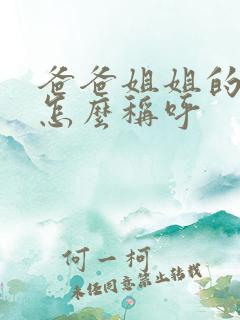 爸爸姐姐的
怎麼稱呼
何一柯
未经同意禁止转载